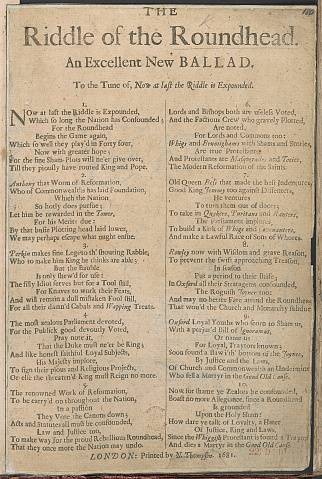 THE
Riddle of the Roundhead.
An Excellent New BALLAD,
To the Tune of, Now at last the Riddle is Expounded.
1.
NOw at last the Riddle is Expounded,
Which so long the Nation has Confounded;
For the Roundhead
Begins the Game again,
Which so well they play'd in Forty four,
Now with greater hope;
For the fine Sham-Plots will ne'er give over,
Till they piously have routed King and Pope.
2.
Anthony that Worm of Reformation,
Who of Commonwealths has laid Foundation,
Which the Nation
So hotly does pursue;
Let him be rewarded in the Tower,
For his Merits due:
By that busie Plotting head laid lower,
We may perhaps escape what might ensue.
3.
Perkin makes fine Legs to th' shouting Rabble,
Who to make him King he thinks are able;
But the Bauble
Is only shew'd for use:
The silly Idiot serves but for a Tool still,
For Knaves to work their Feats,
And will remain a dull mistaken Fool still,
For all their damn'd Cabals and Wapping Treats.
4.
The most zealous Parliament devoted,
For the Publick good devoutly Voted,
Pray note it,
That the Duke must ne'er be King;
And like honest faithful Loyal Subjects,
His Majesty implore,
To sign their pious and Religious Projects,
Or else the threatn'd King must Reign no more.
5.
The renowned Work of Reformation,
To be carry'd on throughout the Nation,
In a passion
They Vote the Courts down;
Acts and Statutes all must be confounded,
Law and Justice too,
To make way for the proud Rebellious Roundhead,
That they once more the Nation may undo.
6.
Lords and Bishops both are useless Voted,
And the Factious Crew who gravely Plotted,
Are noted,
For Lords and Commons too:
Whigs and Brominghams with Shams and Stories,
Are true Protestants
And Protestants are Masqueraders and Tories,
The Modern Reformation of the Saints.
7.
Old Queen Bess that made the best Judentures,
Good King Jemmy too against Dissenters,
He ventures
To turn them out of doors;
To take in Quakers, Puritans and Ranters,
The Parliament implores,
To build a Kirk of Whigs and Covenanters,
And make a Lawful Race of Sons of Whores.
8.
Rowley now with Wisdom and grave Reason,
To prevent the swift approaching Treason,
In season
Put a period to their Base;
In Oxford all their Stratagems confounded,
The Roguish Tower too:
And may no better Fate attend the Roundhead
That wou'd the Church and Monarchy subdue
9.
Oxford Loyal Youths who scorn to Sham us,
With a perjur'd Bill of Ignoramus,
Or name us
For Loyal, Traytors known;
Soon found a flaw i'th' bottom of the Joyner,
By Justice and the Laws,
Of Church and Commonwealth an Underminer
Who fell a Martyr in the Good Old Cause.
10.
Now for shame ye Zealots be confounded,
Boast no more Allegiance, since a Roundhead
Is grounded
Upon the Holy Sham:
How dare ye talk of Loyalty, a Halter
Of Justice, King and Laws,
Since the Whiggish Protestant is found a
And dies a Martyr in the Good Old Cause.
LONDON: Printed by N. Thompson. 1681.